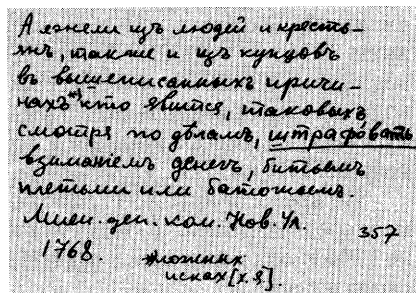 А ежели изъ людей и кресть-
янъ, также и изъ купцовъ
въ вышеписанныхъ причи-
нахъ*) кто явится, таковыхъ
смотря по дѣламъ, штрафовать
взиманіемъ денегъ, битьемъ
плетьми или батожьемъ.
ком. Нов. Ул.
357
1768.
*ложных
исках [х.я].